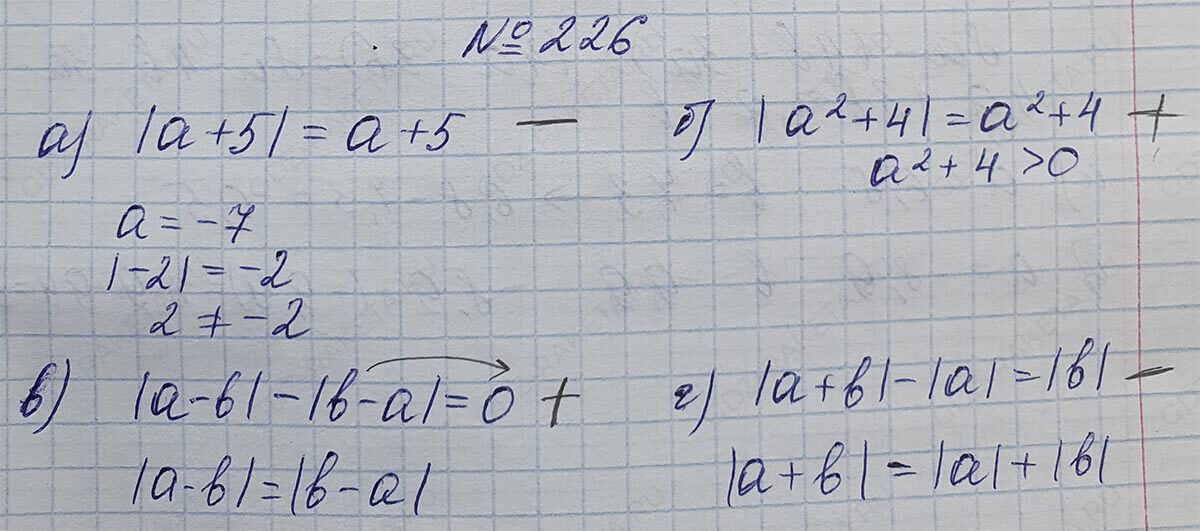 № 226
а) |a+5| = a+5 —
a = -7
|-2| = -2
2 ≠ -2
б) |a²+4| = a²+4 +
a²+4 >0
в) |a-b| - |b-a| = 0 +
|a-b| = |b-a|
г) |a+b| - |a| = |b| —
|a+b| = |a| + |b|